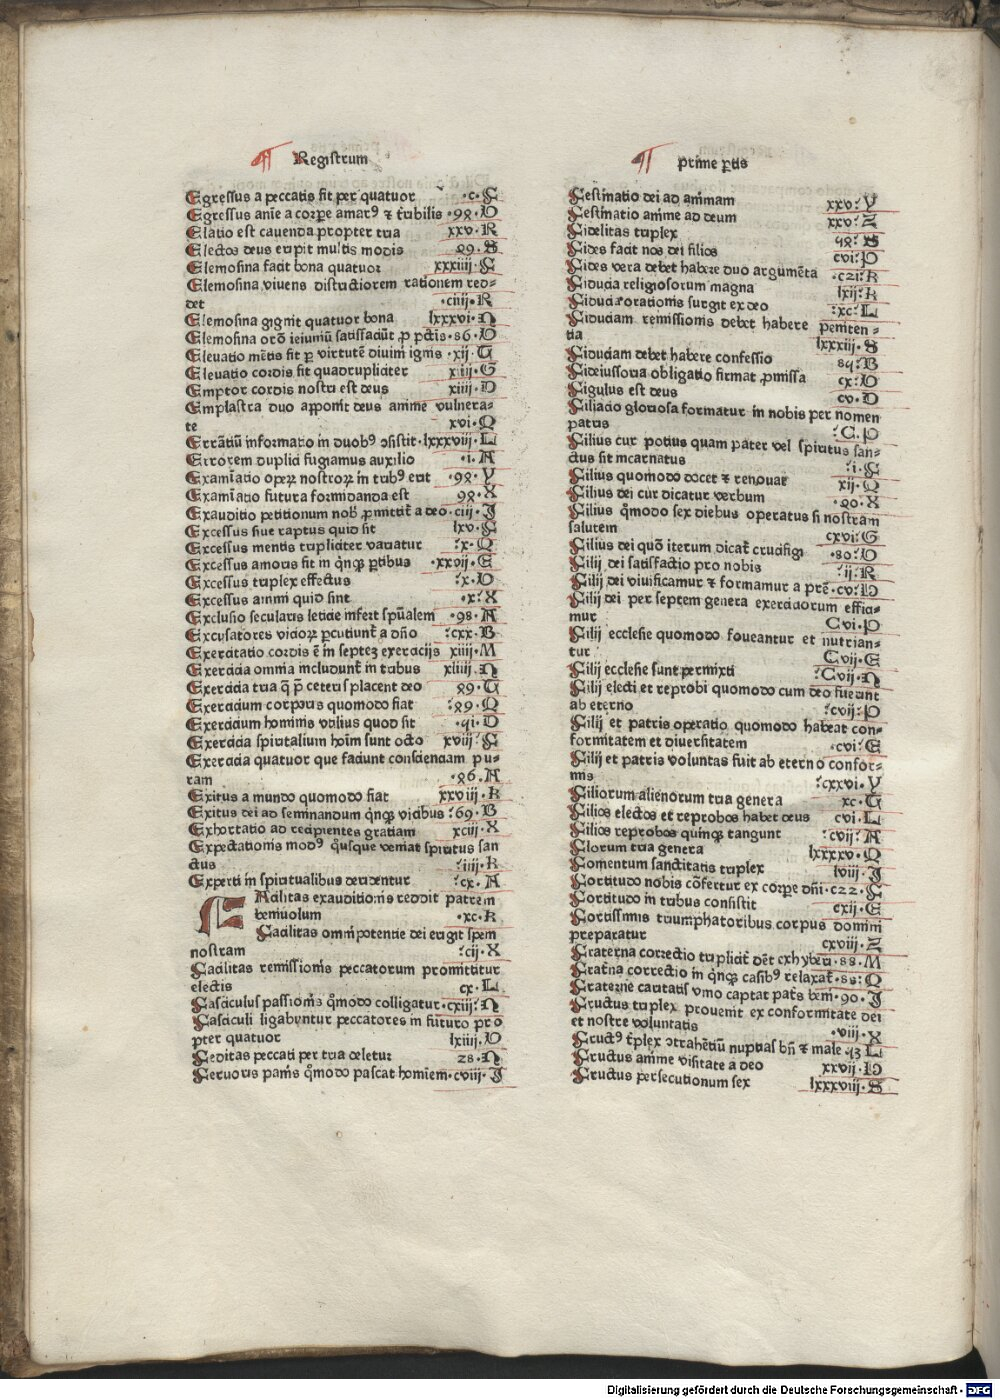 Registrum
Egressus a peccatis fit per quatuor ·c· F
Egressus anīe a corpe amarꝰ ⁊ t̄ribilis ·98· V
Elatio est cauenda propter tria xxv· R
Electos deus eripit multis modis 89· S
Elemosina facit bona quatuor xxxiiij· F
Elemosina viuens districtiorem rationem red-
det ·ciiij· R
Elemosina gignit quatuor bona lxxxvi· N
Elemosina orō ieiuniū satisfaciūt ꝓ pctis ·86· V
Eleuatio mētis fit ꝑ virtutē diuini ignis ·xij· T
Eleuatio cordis fit quadrupliciter xiiij· G
Emptor cordis nostri est deus xiiij· D
Emplastra duo apponit deus anime vulnera-
te xvi· Q
Errātiū informatio in duobꝰ ↄsistit · lxxxviij· L
Errorem duplici fugiamus auxilio ·i· A
Examīatio operꝝ nostrorꝝ in tribꝰ erit ·98· Y
Examīatio futura formidanda est 98· X
Exauditio petitionum nob̄ ꝓmittit̄ a deo · ciij· I
Excessus siue raptus quid sit lxv· F
Excessus mentis tripliciter variatur ·x· Q
Excessus amoris fit in qͥnqꝫ ꝑtibus ·xxvij· E
Excessus triplex effectus ·x· V
Excessus animi quid sint ·x· X
Exclusio secularis leticie infert spūalem ·98· A
Excusatores vicioꝝ ꝑcutiunt̄ a dño ·cxx· B
Exercitatio cordis ē in septeꝫ exercicijs xiiij· M
Exercicia omnia includunt̄ in tribus xliiij· N
Exercicia tria q̄ p̄ ceteris placent deo 89· T
Exercicium corporis quomodo fiat ·89· Q
Exercicium hominis vtilius quod sit ·91· D
Exercicia spiritalium hoīm sunt octo xviij· F
Exercicia quatuor que faciunt conscienciam pu-
ram ·86· A
Exitus a mundo quomodo fiat xxviij· R
Exitus dei ad seminandum qͥnqꝫ vicibus ·69· B
Exhortatio ad recipientes gratiam xciij· X
Expectationis modꝰ qͥusque veniat spiritus san
ctus ·iiij· R
Experti in spiritualibus deridentur ·cx· A
FAcilitas exauditionis reddit patrem
beniuolum ·xc· R
Facilitas omīpotentie dei erigit spem
nostram ·cij· X
Facilitas remissionis peccatorum promittitur
electis cx· L
Fasciculus passionis qͦmodo colligatur · cxiij· N
Fasciculi ligabuntur peccatores in futuro pro
pter quatuor lxiiij· V
Feditas peccati per tria deletur 28· N
Feruoris panis qͦmodo pascat hominem · cviij· I
prime ꝑtis
Festinatio dei ad animam xxv· Y
Festinatio anime ad deum xxv· Z
Fidelitas triplex 98· S
Fides facit nos dei filios cvi· P
Fides vera debet habere duo argumēta ·c21· R
Fiducia religiosorum magna lxij· R
Fiducia orationis surgit ex deo ·xc· L
Fiduciam remissionis debet habere peniten-
tia lxxxiij· S
Fiduciam debet habere confessio 89· B
Fideiussoria obligatio firmat ꝓmissa cx· V
Figulus est deus cv· D
Filiacio gloriosa formatur in nobis per nomen
patris ·C· P
Filius cur potius quam pater vel spiritus san-
ctus sit incarnatus ·i· F
Filius quomodo docet ⁊ renouat xij· Q
Filius dei cur dicatur verbum ·80· X
Filius qͦmodo sex diebus operatus sit nostram
salutem cxvi· G
Filius dei quō iterum dicat̄ crucifigi ·80· V
Filij dei satisfactio pro nobis ·ij· R
Filij dei viuificamur ⁊ formamur a prē · cv· H
Filij dei per septem genera exerciciorum effici-
mur Cvi· P
Filij ecclesie quomodo foueantur et nutrian-
tur Cvij· E
Filij ecclesie sunt permixti ·Cvij· N
Filij electi et reprobi quomodo cum deo fuerint
ab eterno ·cvij· P
Filij et patris operatio quomodo habeat con-
formitatem et diuersitatem ·cvi· E
Filij et patris voluntas fuit ab eterno confor-
mis ·cxxvi· Y
Filiorum alienorum tria genera xc· T
Filios electos et reprobos habet deus cvi· L
Filios reprobos quinqꝫ tangunt ·cvij· A
Florum tria genera lxxxxv· Q
Fomentum sanctitatis triplex lviij· I
Fortitudo nobis cōfertur ex corpe dñi · c22· F
Fortitudo in tribus consistit cxij· E
Fortissimis triumphatoribus corpus domini
preparatur cxviij· Z
Fraterna correctio triplicit̄ dēt exhyberi · 88· M
Frat̄na correctio in qͥnqꝫ casibꝰ relaxat̄ · 88· Q
Fraterne caritatis vnio captat patꝭ beniꝰ · 90· I
Fructus triplex prouenit ex conformitate dei
et nostre voluntatis ·viij· X
Fructꝰ t̄plex ↄtrahētiū nuptias bñ ⁊ male 93 L
Fructus anime visitate a deo xxvij· H
Fructus persecutionum sex lxxxviij· S
Digitalisierung gefördert durch die Deutsche Forschungsgemeinschaft - DFG